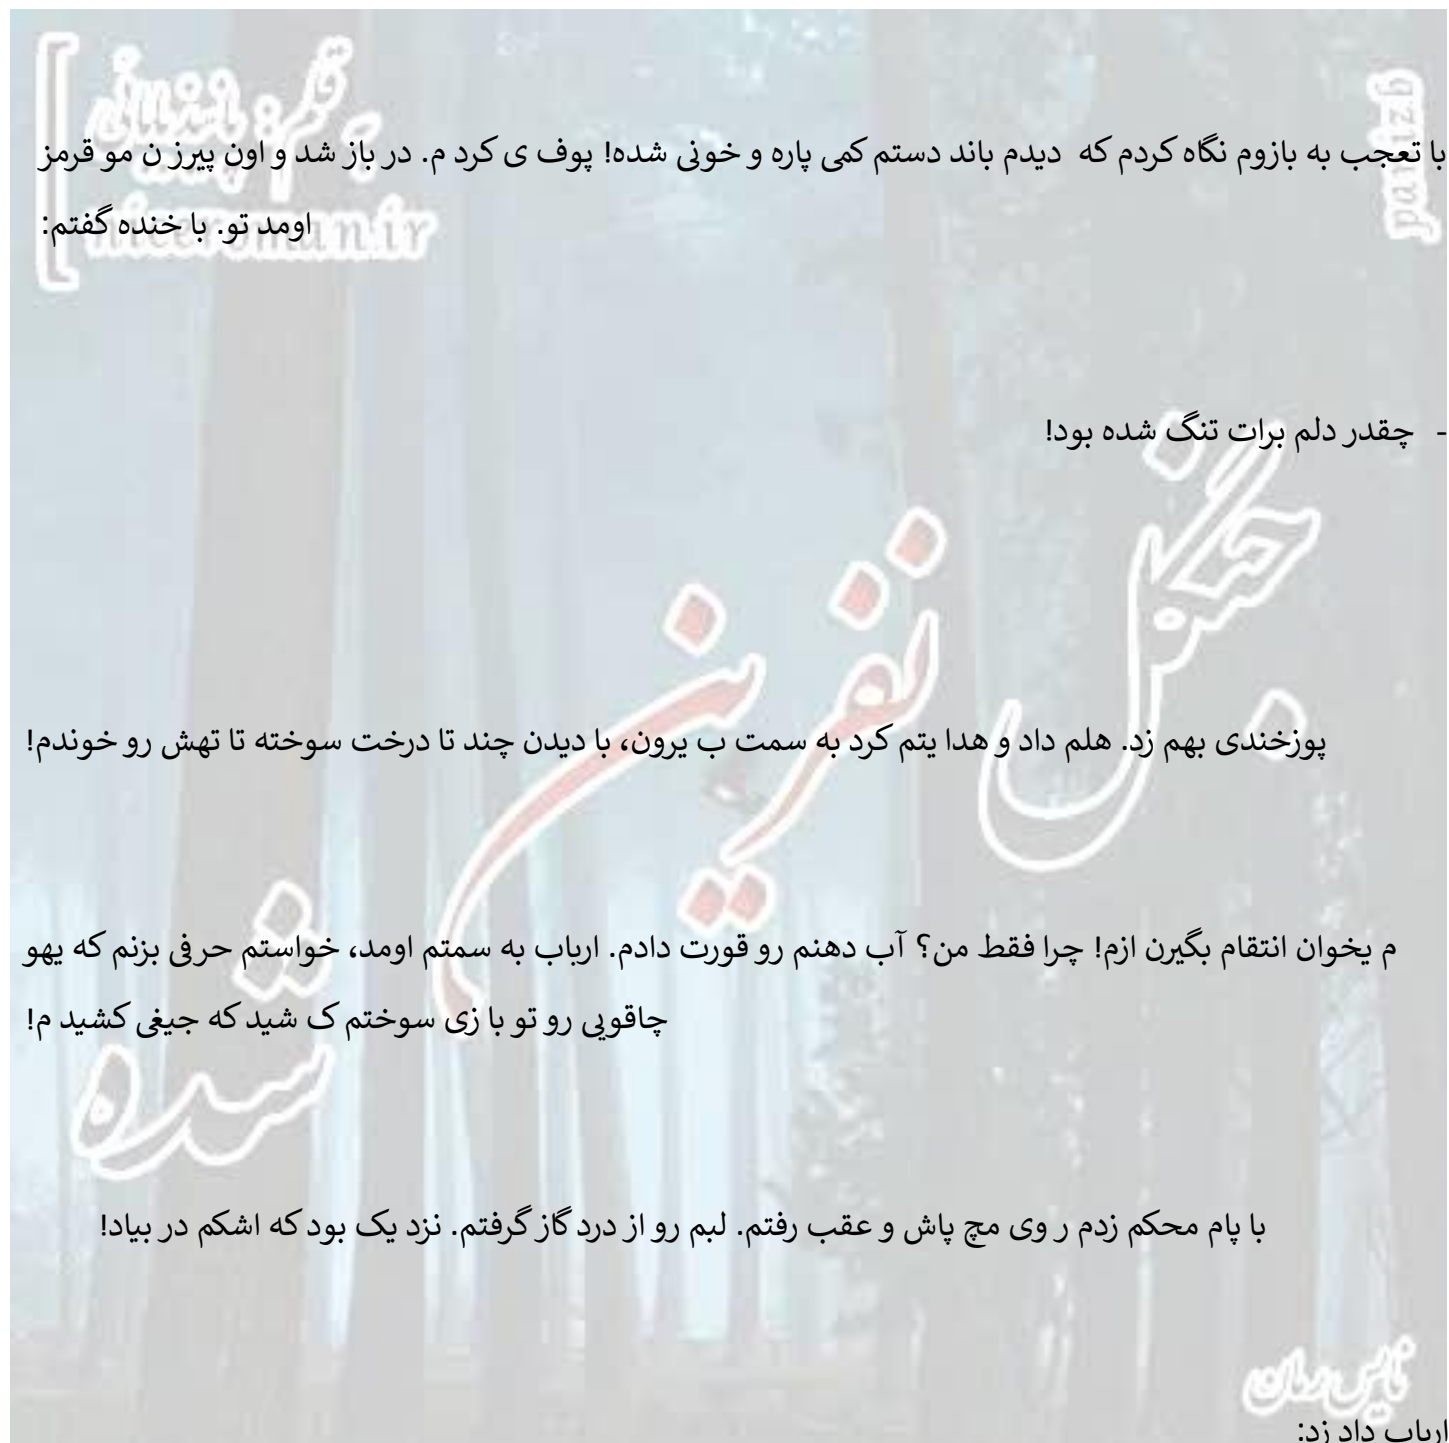 با تعجب به بازوم نگاه کردم که دیدم باند دستم کمی پاره و خونی شده! پوف ی کرد م. در باز شد و اون پیرز ن مو قرمز
اومد تو. با خنده گفتم:
niceroman.ir
parizb
- چقدر دلم برات تنگ شده بود!
جنگل
نفرین
پوزخندی بهم زد. هلم داد و هدا یتم کرد به سمت ب یرون، با دیدن چند تا درخت سوخته تا تهش رو خوندم!
م یخوان انتقام بگیرن ازم! چرا فقط من؟ آب دهنم رو قورت دادم. ارباب به سمتم اومد، خواستم حرفی بزنم که یهو
چاقویی رو تو با زی سوختم ک شید که جیغی کشید م!
شده
با پام محکم زدم ر وی مچ پاش و عقب رفتم. لبم رو از درد گاز گرفتم. نزد یک بود که اشکم در بیاد!
نایس رمان
ارباب داد زد: